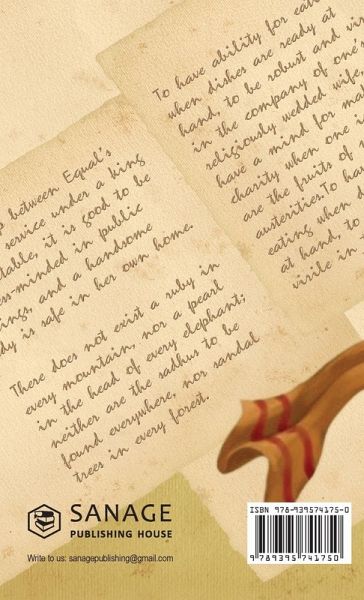 To have ability for eati
when dishes are ready at
hand, to be robust and vir
in the company of one's
religiously wedded wife,
have a mind for mak
charity when one i
are the fruits of
austerities.To has
eating when
at hand, to
virile in
p between Equal's
service under a king
table, it is good to be
ess-minded in public
ings, and a handsome
dy is safe in her own home.
There does not exist a ruby in
every mountain, nor a pearl
in the head of every elephant;
neither are the sadhus to be
found everywhere, nor sandal
trees in every forest.
SANAGE
PUBLISHING HOUSE
Write to us: sanagepublishing@gmail.com
ISBN 978-939574175-0
9 789395 741750